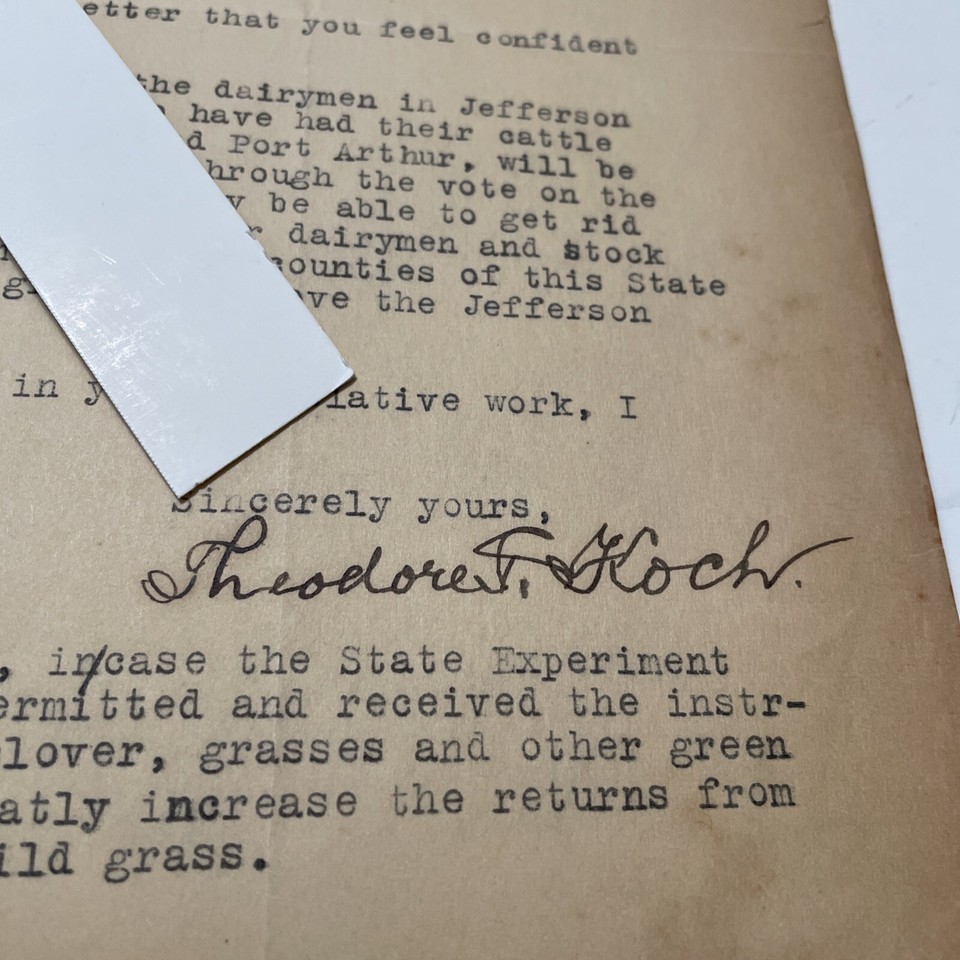 etter that you feel confident
the dairymen in Jefferson
have had their cattle
d Port Arthur, will be
hrough the vote on the
y be able to get rid
r dairymen and stock
ounties of this State
ve the Jefferson
in y lative work, I
Sincerely yours,
Theodore F. Koch.
, in/case the State Experiment
ermitted and received the instr-
lover, grasses and other green
atly increase the returns from
ild grass.